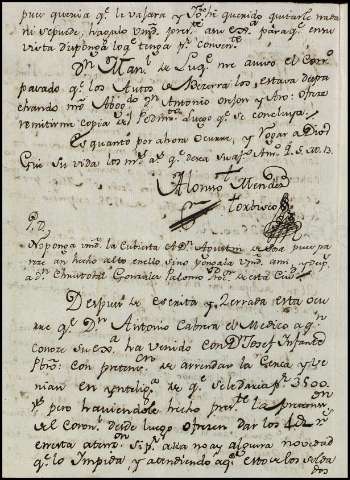 que queria q.e le vajara y Yo he querido quitarle nada
ni se puede, hagalo Vm.d pres.te a su Ex.a para q.e en su
vista disponga lo q.e tenga p.r comben.te
D.n Man.l de Luq.e me aviso el Corr.o
pasado q.e los Autos de Bezerra los estava despa
chando nro Abog.do D.n Antonio y ofreze
remitirme copia del luego q.e se concluya.
Es quanto por ahora ocurre, y ruego a Dios
Gue su vida los m.s a.s q.e desea su af.mo Am.o Q. S. M. B.
Alonso Mendez
de Torbisco
P. D.
No ponga Vm.d la Cubierta a D.n Agustin de pues pare
han hecho alto en ello sino pongala Vm.d a mi, y
a D.n Christobal Gonzalez Palomo de esta Ciud.d
Despues de escrita y zerrada esta ocu
rre q.e D.n Antonio Cabrera el Medico a q.n
conoze su Ex.a ha venido con D.n Josef Infante
Pbro: con preten.on de arrendar la Geria y ve
nian en ynteligz.a de q.e se le daria p.r 3500
r.s pero haviendole hecho pres.te la preten.on
del Coron.l desde luego ofrezen dar los 4 d r.s
en esta aten.on si p.r alla no ay alguna novedad
q.e lo Impida y atendiendo a q.e estos los solda
dos